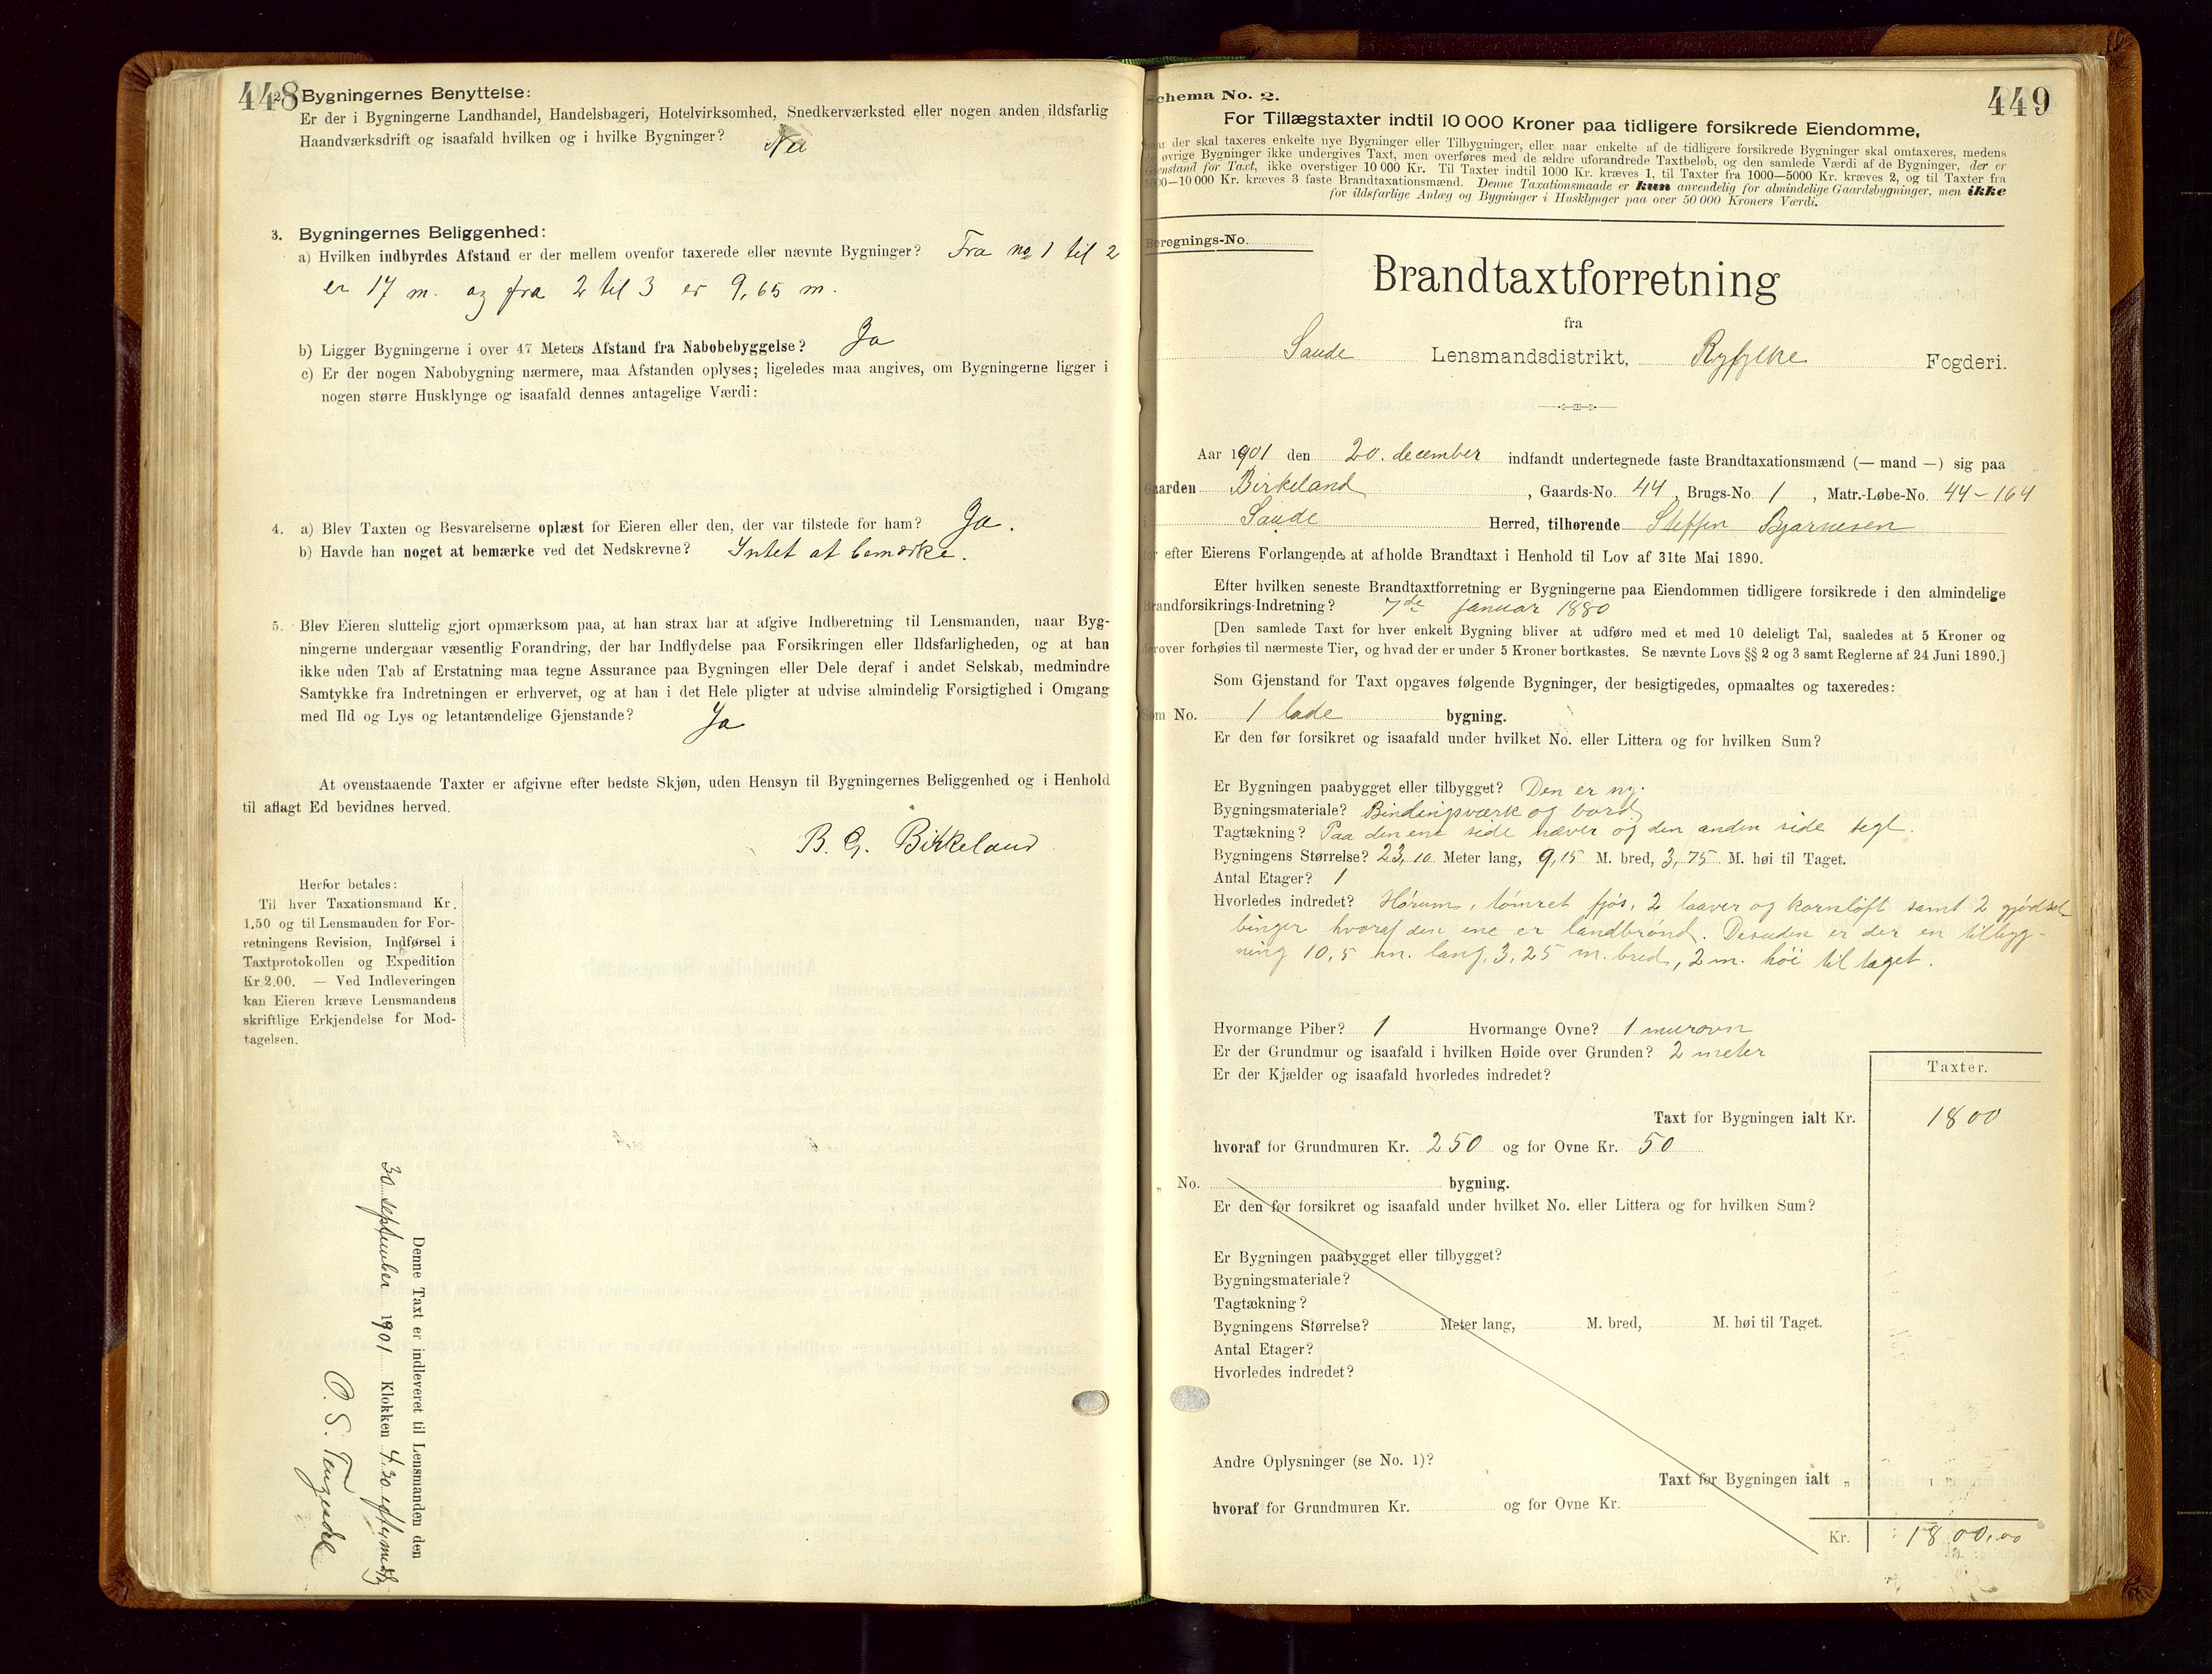 448
2. Bygningernes Benyttelse:
Er der i Bygningerne Landhandel, Handelsbageri, Hotelvirksomhed, Snedkerværksted eller nogen anden ildsfarlig
Haandværksdrift og isaafald hvilken og i hvilke Bygninger? Nei
3. Bygningernes Beliggenhed:
a) Hvilken indbyrdes Afstand er der mellem ovenfor taxerede eller nævnte Bygninger? Fra no 1 til 2
er 17 m. og fra 2 til 3 er 9,65 m.
b) Ligger Bygningerne i over 47 Meters Afstand fra Nabobebyggelse? Ja
c) Er der nogen Nabobygning nærmere, maa Afstanden oplyses; ligeledes maa angives, om Bygningerne ligger i
nogen større Husklynge og isaafald dennes antagelige Værdi:
4. a) Blev Taxten og Besvarelserne oplæst for Eieren eller den, der var tilstede for ham? Ja.
b) Havde han noget at bemærke ved det Nedskrevne? Intet at bemærke.
5. Blev Eieren sluttelig gjort opmærksom paa, at han strax har at afgive Indberetning til Lensmanden, naar Byg-
ningerne undergaar væsentlig Forandring, der har Indflydelse paa Forsikringen eller Ildsfarligheden, og at han
ikke uden Tab af Erstatning maa tegne Assurance paa Bygningen eller Dele deraf i andet Selskab, medmindre
Samtykke fra Indretningen er erhvervet, og at han i det Hele pligter at udvise almindelig Forsigtighed i Omgang
med Ild og Lys og letantændelige Gjenstande? Ja
At ovenstaaende Taxter er afgivne efter bedste Skjøn, uden Hensyn til Bygningernes Beliggenhed og i Henhold
til aflagt Ed bevidnes herved.
B. G. Birkeland
Herfor betales:
Til hver Taxationsmand Kr.
1.50 og til Lensmanden for For-
retningens Revision, Indførsel i
Taxtprotokollen og Expedition
Kr. 2.00. — Ved Indleveringen
kan Eieren kræve Lensmandens
skriftlige Erkjendelse for Mod-
tagelsen.
Denne Taxt er indleveret til Lensmanden den
30 september 1901 Klokken 4.30 eftermidd
O. S. Tengesdal
449
Schema No. 2.
For Tillægstaxter indtil 10 000 Kroner paa tidligere forsikrede Eiendomme,
naar der skal taxeres enkelte nye Bygninger eller Tilbygninger, eller naar enkelte af de tidligere forsikrede Bygninger skal omtaxeres, medens
de øvrige Bygninger ikke undergives Taxt, men overføres med de ældre uforandrede Taxtbeløb, og den samlede Værdi af de Bygninger, der er
Gjenstand for Taxt, ikke overstiger 10 000 Kr. Til Taxter indtil 1000 Kr. kræves 1, til Taxter fra 1000—5000 Kr. kræves 2, og til Taxter fra
5000—10 000 Kr. kræves 3 faste Brandtaxationsmænd. Denne Taxationsmaade er kun anvendelig for almindelige Gaardsbygninger, men ikke
for ildsfarlige Anlæg og Bygninger i Husklynger paa over 50 000 Kroners Værdi.
Beregnings-No.
Brandtaxtforretning
fra
Saude Lensmandsdistrikt, Ryfylke Fogderi.
Aar 1901 den 20. december indfandt undertegnede faste Brandtaxationsmænd (— mand —) sig paa
Gaarden Birkeland, Gaards-No. 44, Brugs-No. 1, Matr.-Løbe-No. 44-164
i Saude Herred, tilhørende Steffen Bjarnesen
for efter Eierens Forlangende at afholde Brandtaxt i Henhold til Lov af 31te Mai 1890.
Efter hvilken seneste Brandtaxtforretning er Bygningerne paa Eiendommen tidligere forsikrede i den almindelige
Brandforsikrings-Indretning? 7de januar 1880
[Den samlede Taxt for hver enkelt Bygning bliver at udføre med et med 10 deleligt Tal, saaledes at 5 Kroner og
derover forhøies til nærmeste Tier, og hvad der er under 5 Kroner bortkastes. Se nævnte Lovs §§ 2 og 3 samt Reglerne af 24 Juni 1890.]
Som Gjenstand for Taxt opgaves følgende Bygninger, der besigtigedes, opmaaltes og taxeredes:
Som No. 1 lade bygning.
Er den før forsikret og isaafald under hvilket No. eller Littera og for hvilken Sum?
Er Bygningen paabygget eller tilbygget? Den er ny.
Bygningsmateriale? Bindingsværk og bord.
Tagtækning? Paa den ene side næver og den anden side tegl.
Bygningens Størrelse? 23,10 Meter lang, 9,15 M. bred, 3,75 M. høi til Taget.
Antal Etager? 1
Hvorledes indredet? Hørum, tømret fjøs, 2 laaver og kornloft samt 2 gjødsel
binger hvoraf den ene er landbrønd. Desuden er der en tilbyg-
ning 10,5 m. lang, 3,25 m. bred, 2 m. høi til taget.
Hvormange Piber? 1 Hvormange Ovne? 1 murovn
Er der Grundmur og isaafald i hvilken Høide over Grunden? 2 meter
Er der Kjælder og isaafald hvorledes indredet?
Taxter.
Taxt for Bygningen ialt Kr. 1800
hvoraf for Grundmuren Kr. 250 og for Ovne Kr. 50
„ No. bygning.
Er den før forsikret og isaafald under hvilket No. eller Littera og for hvilken Sum?
Er Bygningen paabygget eller tilbygget?
Bygningsmateriale?
Tagtækning?
Bygningens Størrelse? Meter lang, M. bred, M. høi til Taget.
Antal Etager?
Hvorledes indredet?
Andre Oplysninger (se No. 1)?
Taxt for Bygningen ialt „
hvoraf for Grundmuren Kr. og for Ovne Kr.
Kr. 1800,00